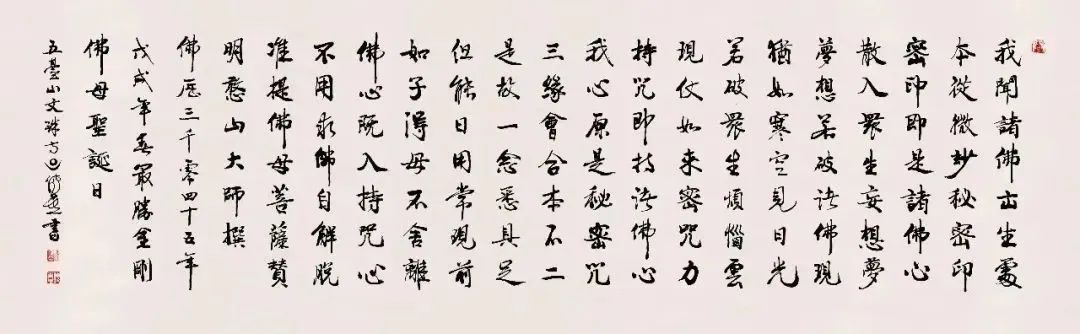 我聞諸佛出生處
本從微妙秘密印
密印即是諸佛心
散入眾生妄想夢
夢想若破諸佛現
猶如寒空見日光
若破眾生煩惱雲
現仗如來密咒力
持咒即持諸佛心
我心原是秘密咒
三緣會合本不二
是故一念悉具足
但能日用常現前
如子得母不舍離
佛心既入持咒心
不用求佛自解脫
准提佛母菩薩贊
明憨山大師撰
佛歷三千零四十五年
戊戌年最勝金剛
佛母聖誕日
五臺山文殊寺書